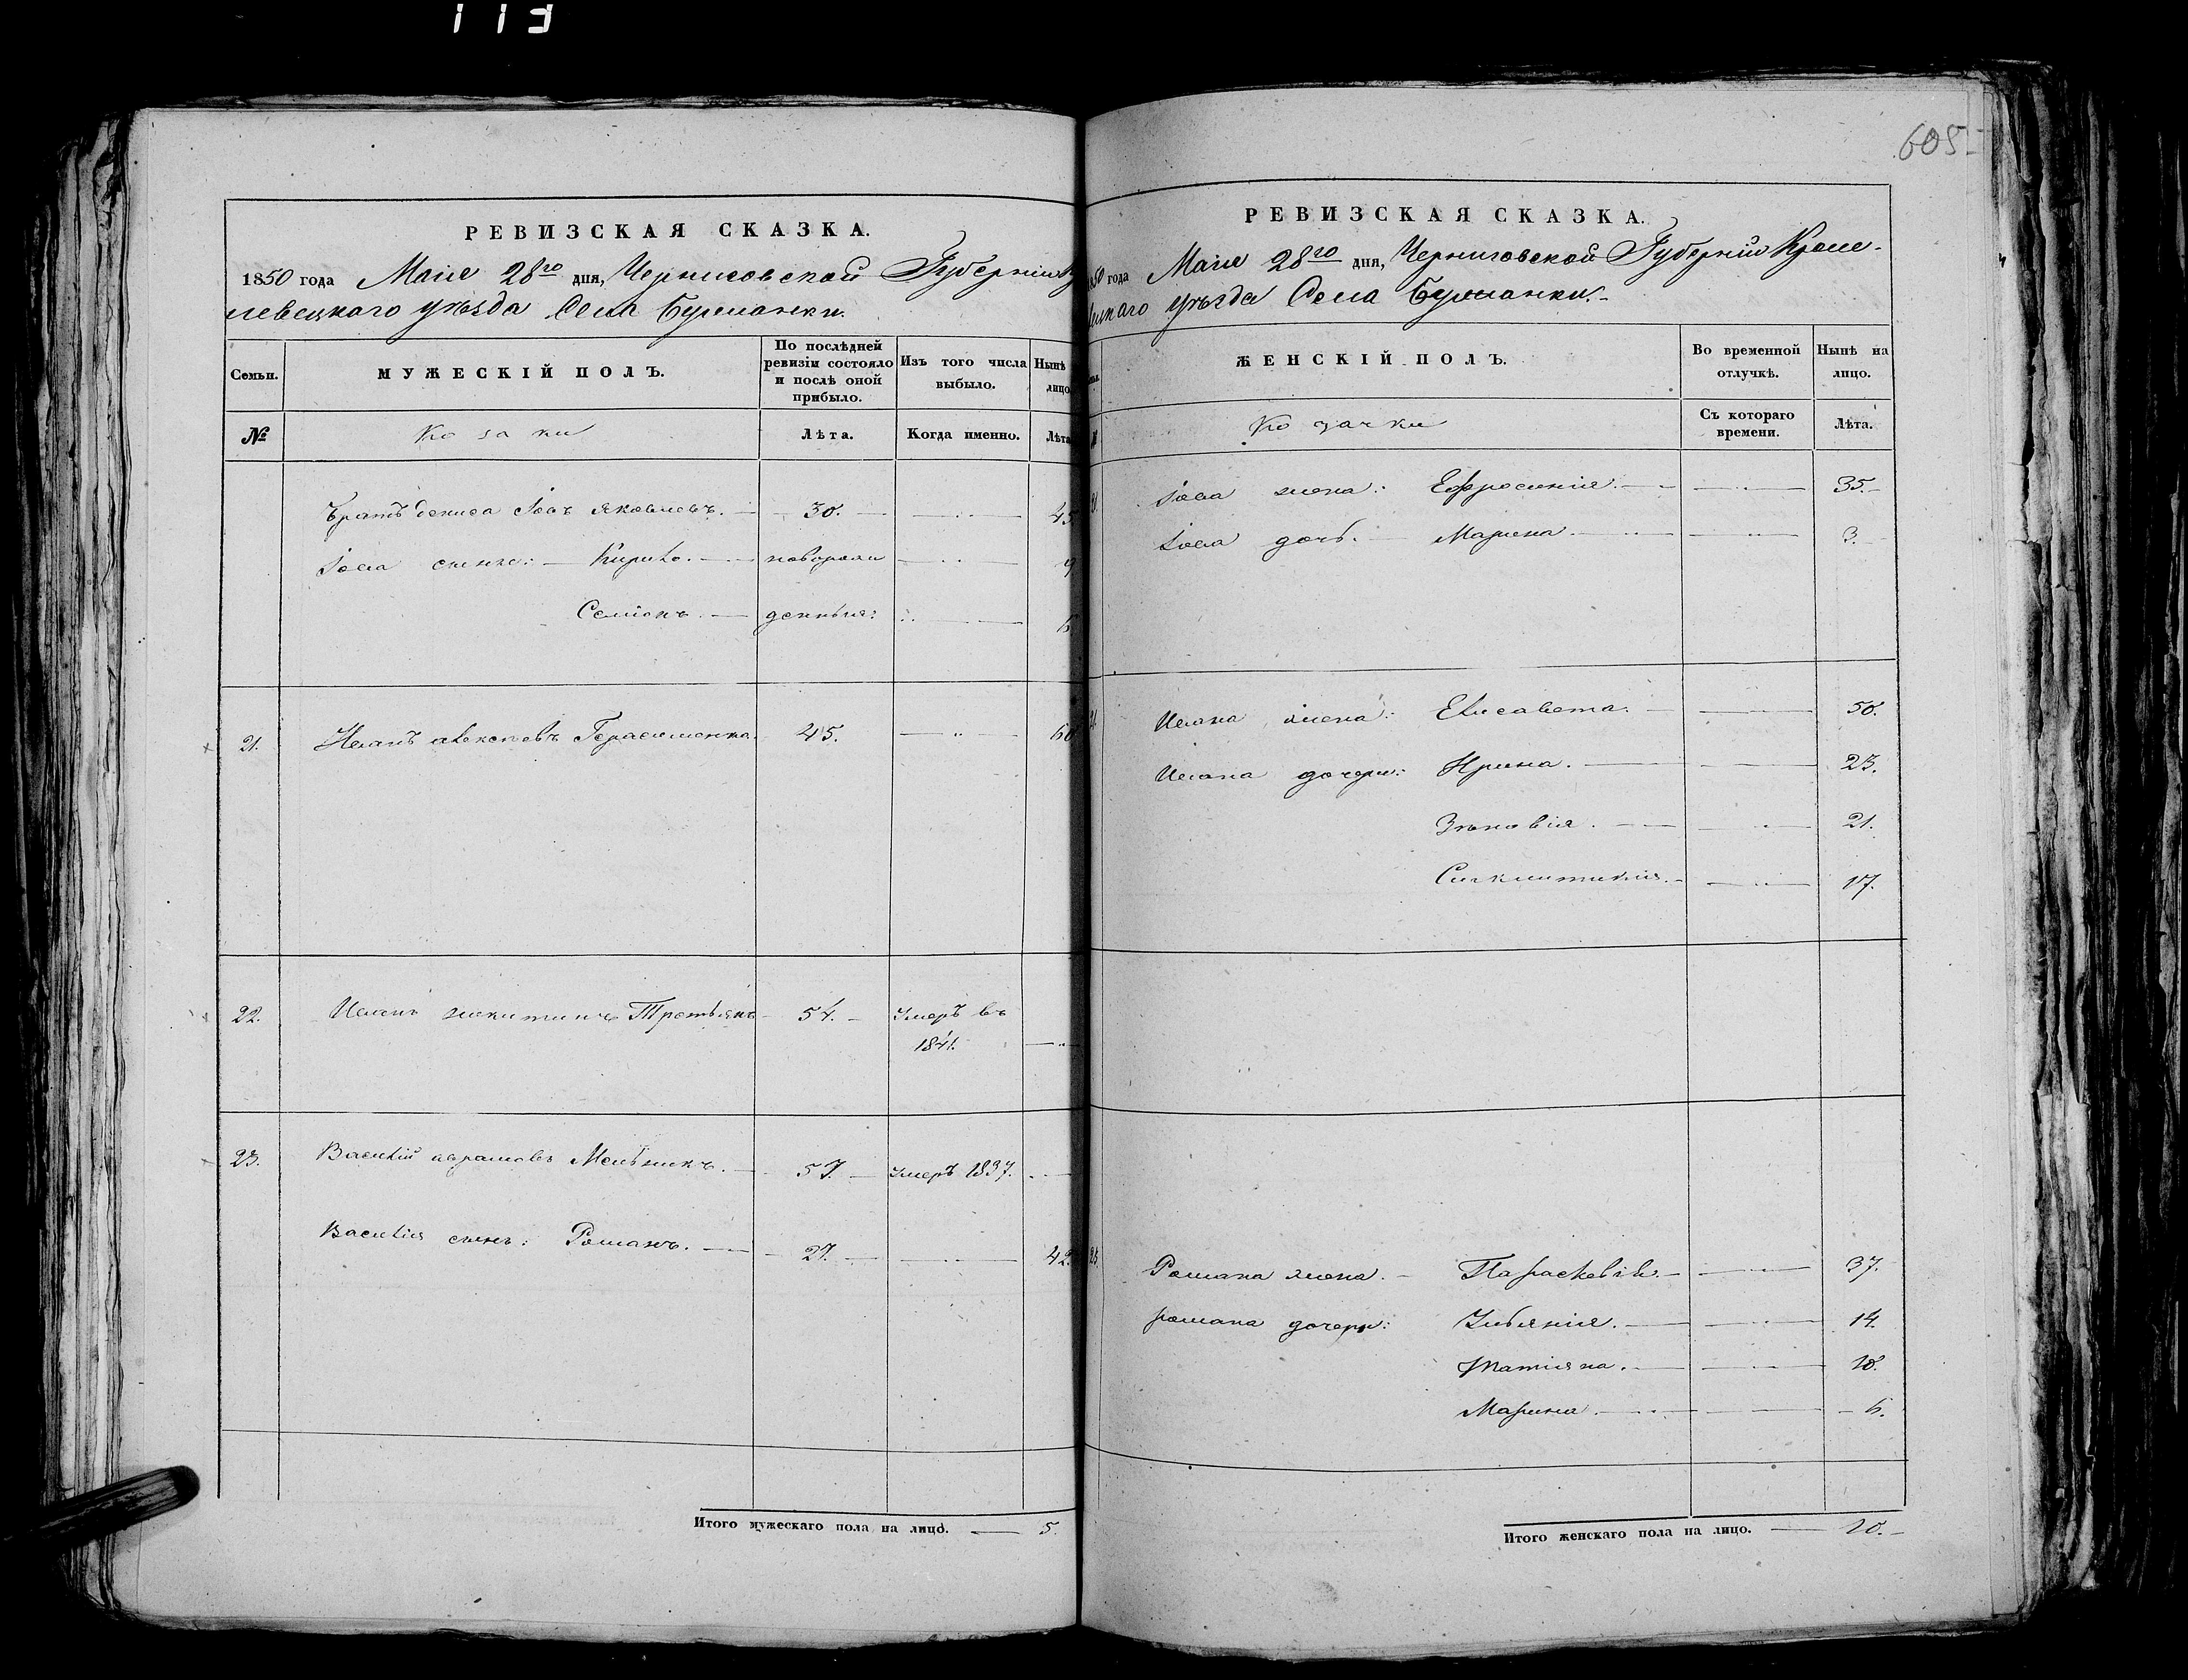 113
РЕВИЗСКАЯ СКАЗКА.
1850 года Маія 28го дня, Черниговской Губерніи
левецкаго уѣзда Села
Семьи.
МУЖЕСКІЙ ПОЛЪ.
По послѣдней ревизіи состояло и послѣ оной прибыло.
Изъ того числа выбыло.
Нынѣ лицо
№
Козаки
Лѣта.
Когда именно.
Лѣта
Братъ Дениса Іовъ Яковлевъ. 30. 45
Іова сыны: Кирило. новорож 9
Семіонъ. денныя: 6.
21. Иванъ Алексѣевъ Герасименко. 45. 60
22. Иванъ Никитинъ Третьякъ 54. Умеръ въ
1841.
23. Василій Аврамовъ Мельникъ. 57. Умеръ 1837.
Василія сынъ: Романъ. 27. 42.
Итого мужескаго пола на лицо. 5.
605
РЕВИЗСКАЯ СКАЗКА.
50 года Маія 28го дня, Черниговской Губерніи Кроле-
вецкаго уѣзда Села
ЖЕНСКІЙ ПОЛЪ.
Во временной отлучкѣ.
Нынѣ на лицо.
Козачки
Съ котораго времени.
Лѣта.
Іова жена: Ефросинія. 35.
Іова дочь. Марина. 3.
Ивана жена: Елисавета. 50.
Ивана дочери: Ирина. 23.
Зѣновія. 21.
Синклитикія. 17.
Романа жена. Параскевія. 37.
Романа дочери: Уліянія. 14.
Татіяна. 10.
Марина. 6.
Итого женскаго пола на лицо. 10.